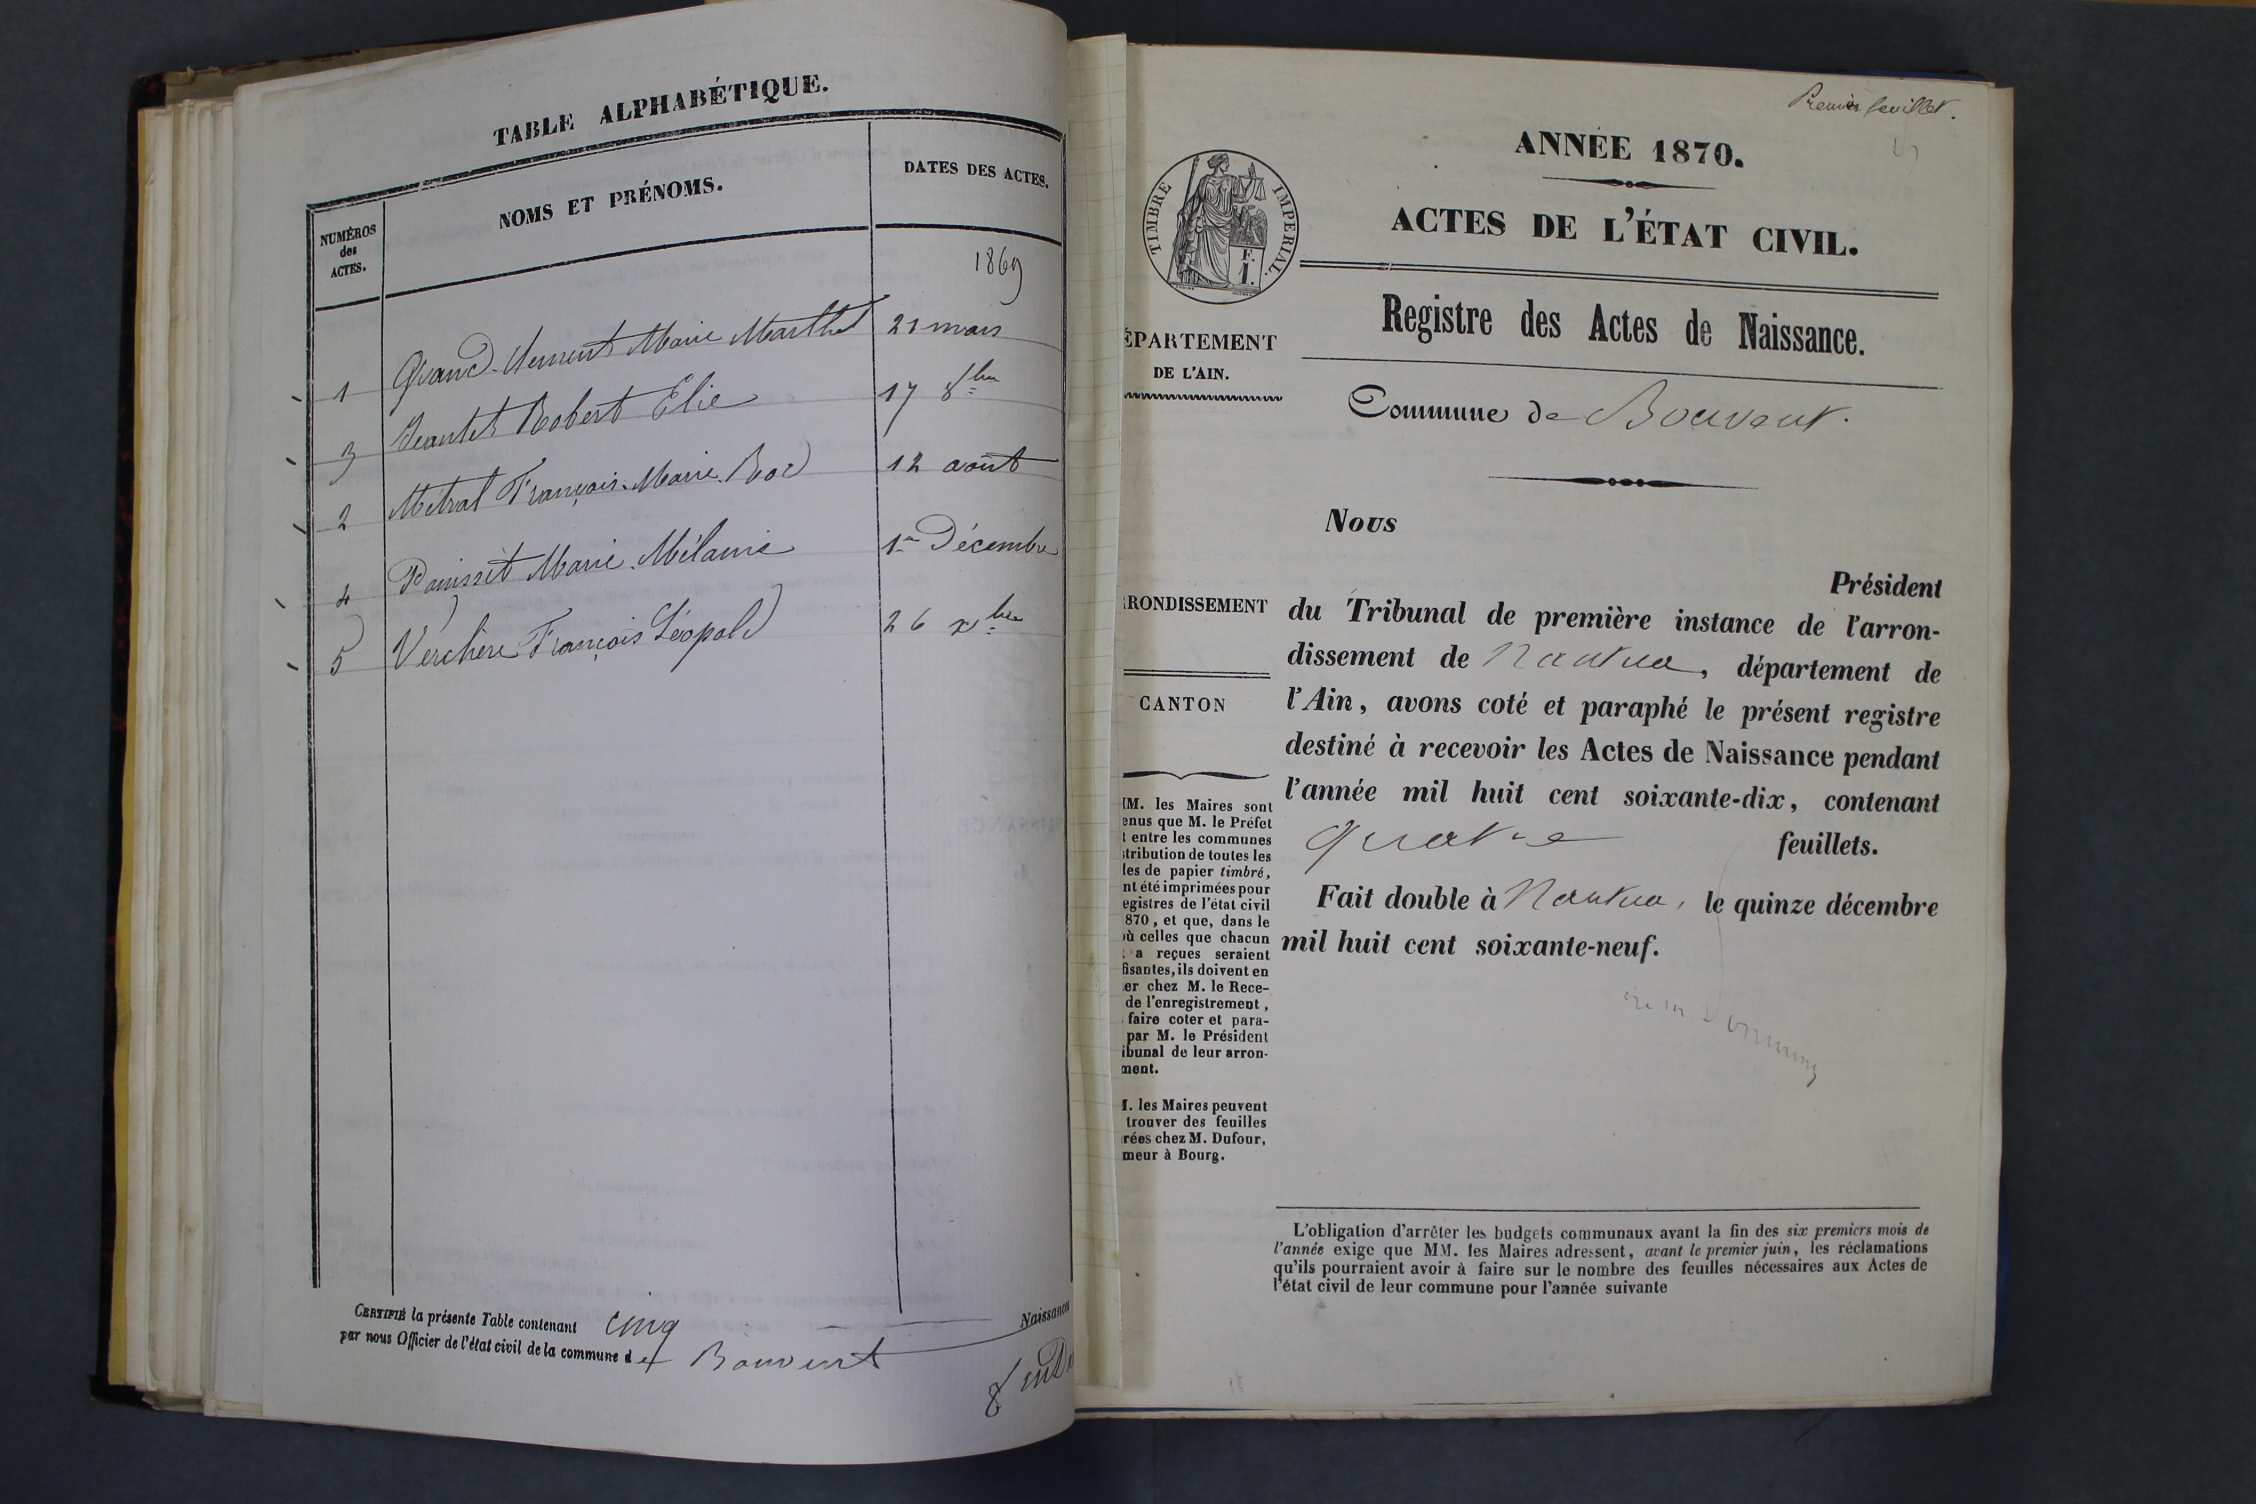 TABLE ALPHABÉTIQUE.
NUMÉROS
des
ACTES.
NOMS ET PRÉNOMS.
DATES DES ACTES.
1869
1 Grand-Clément Marie Marthe 21 mars
3 Jeantet Robert Elie 17 8bre
2 Métral François-Marie 12 août
4 Panisset Marie Mélanie 1er Décembre
5 Verchère François Léopold 26 xbre
CERTIFIÉ la présente Table contenant cinq Naissances
par nous Officier de l'état civil de la commune de Bouvent
Premier feuillet.
ANNÉE 1870.
ACTES DE L'ÉTAT CIVIL.
TIMBRE IMPÉRIAL.
F.
1.
Registre des Actes de Naissance.
ÉPARTEMENT
DE L'AIN.
Commune de Bouvent.
Nous
Président
du Tribunal de première instance de l'arron-
dissement de Nantua, département de
l'Ain, avons coté et paraphé le présent registre
destiné à recevoir les Actes de Naissance pendant
l'année mil huit cent soixante-dix, contenant
quatre feuillets.
Fait double à Nantua, le quinze décembre
mil huit cent soixante-neuf.
RONDISSEMENT
CANTON
MM. les Maires sont
enus que M. le Préfet
t entre les communes
stribution de toutes les
les de papier timbré,
nt été imprimées pour
egistres de l'état civil
870, et que, dans le
où celles que chacun
a reçues seraient
fisantes, ils doivent en
er chez M. le Rece-
de l'enregistrement,
faire coter et para-
par M. le Président
ibunal de leur arron-
ment.
M. les Maires peuvent
trouver des feuilles
rées chez M. Dufour,
meur à Bourg.
L'obligation d'arrêter les budgets communaux avant la fin des six premiers mois de
l'année exige que MM. les Maires adressent, avant le premier juin, les réclamations
qu'ils pourraient avoir à faire sur le nombre des feuilles nécessaires aux Actes de
l'état civil de leur commune pour l'année suivante